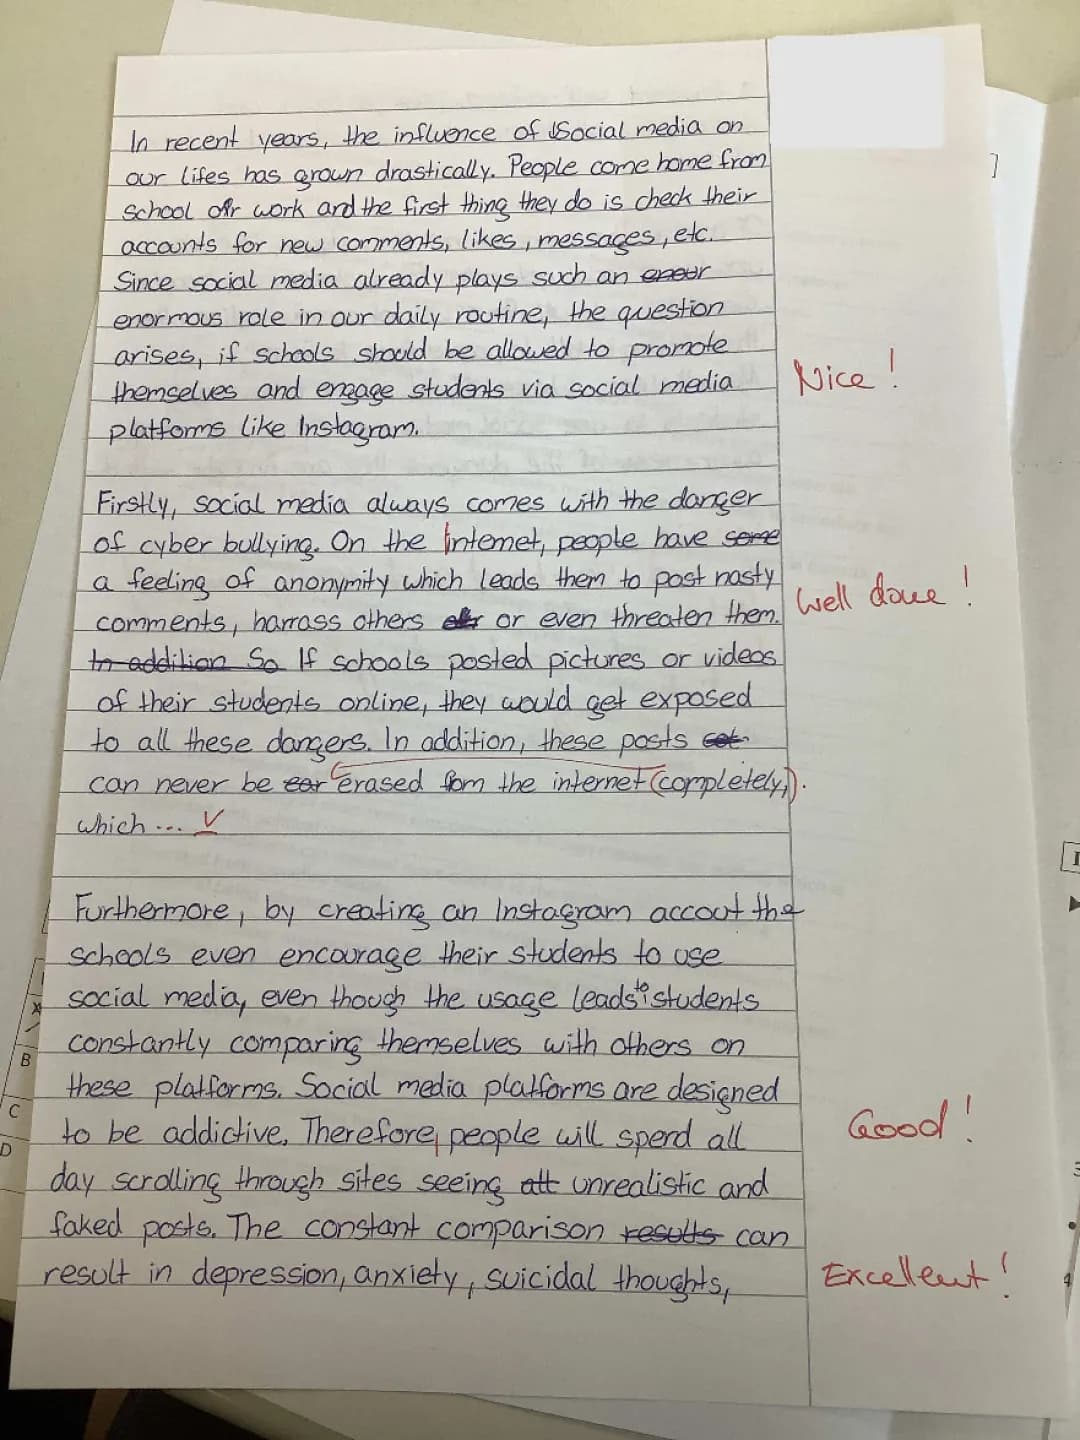 In recent years, the influence of Social media on
our lifes has grown drastically. People come home from
school or work and the first thing they do is check their
accounts for new comments, likes, messages, etc.
Since social media already plays such an
enormous role in our daily routine, the question
arises, if schools should be allowed to promote
themselves and engage students via social media
Nice!
platforms like Instagram.
Firstly, social media always comes with the danger
of cyber bullying. On the internet, people have some
a feeling of anonymity which leads them to post nasty
Well done!
comments, harrass others or even threaten them.
In addition So If schools posted pictures or videos
of their students online, they would get exposed
to all these dangers. In addition, these posts
can never be erased fom the internet (completely,).
which... V
Furthermore, by creating an Instagram accout the
schools even encourage their students to use
social media, even though the usage leads to students
constantly comparing themselves with others on
these platforms. Social media platforms are designed
to be addictive. Therefore, people will spend all
Good!
day scrolling through sites seeing att unrealistic and
faked posts. The constant comparison results can
result in depression, anxiety, suicidal thoughts,
Excellent!
B
C
D